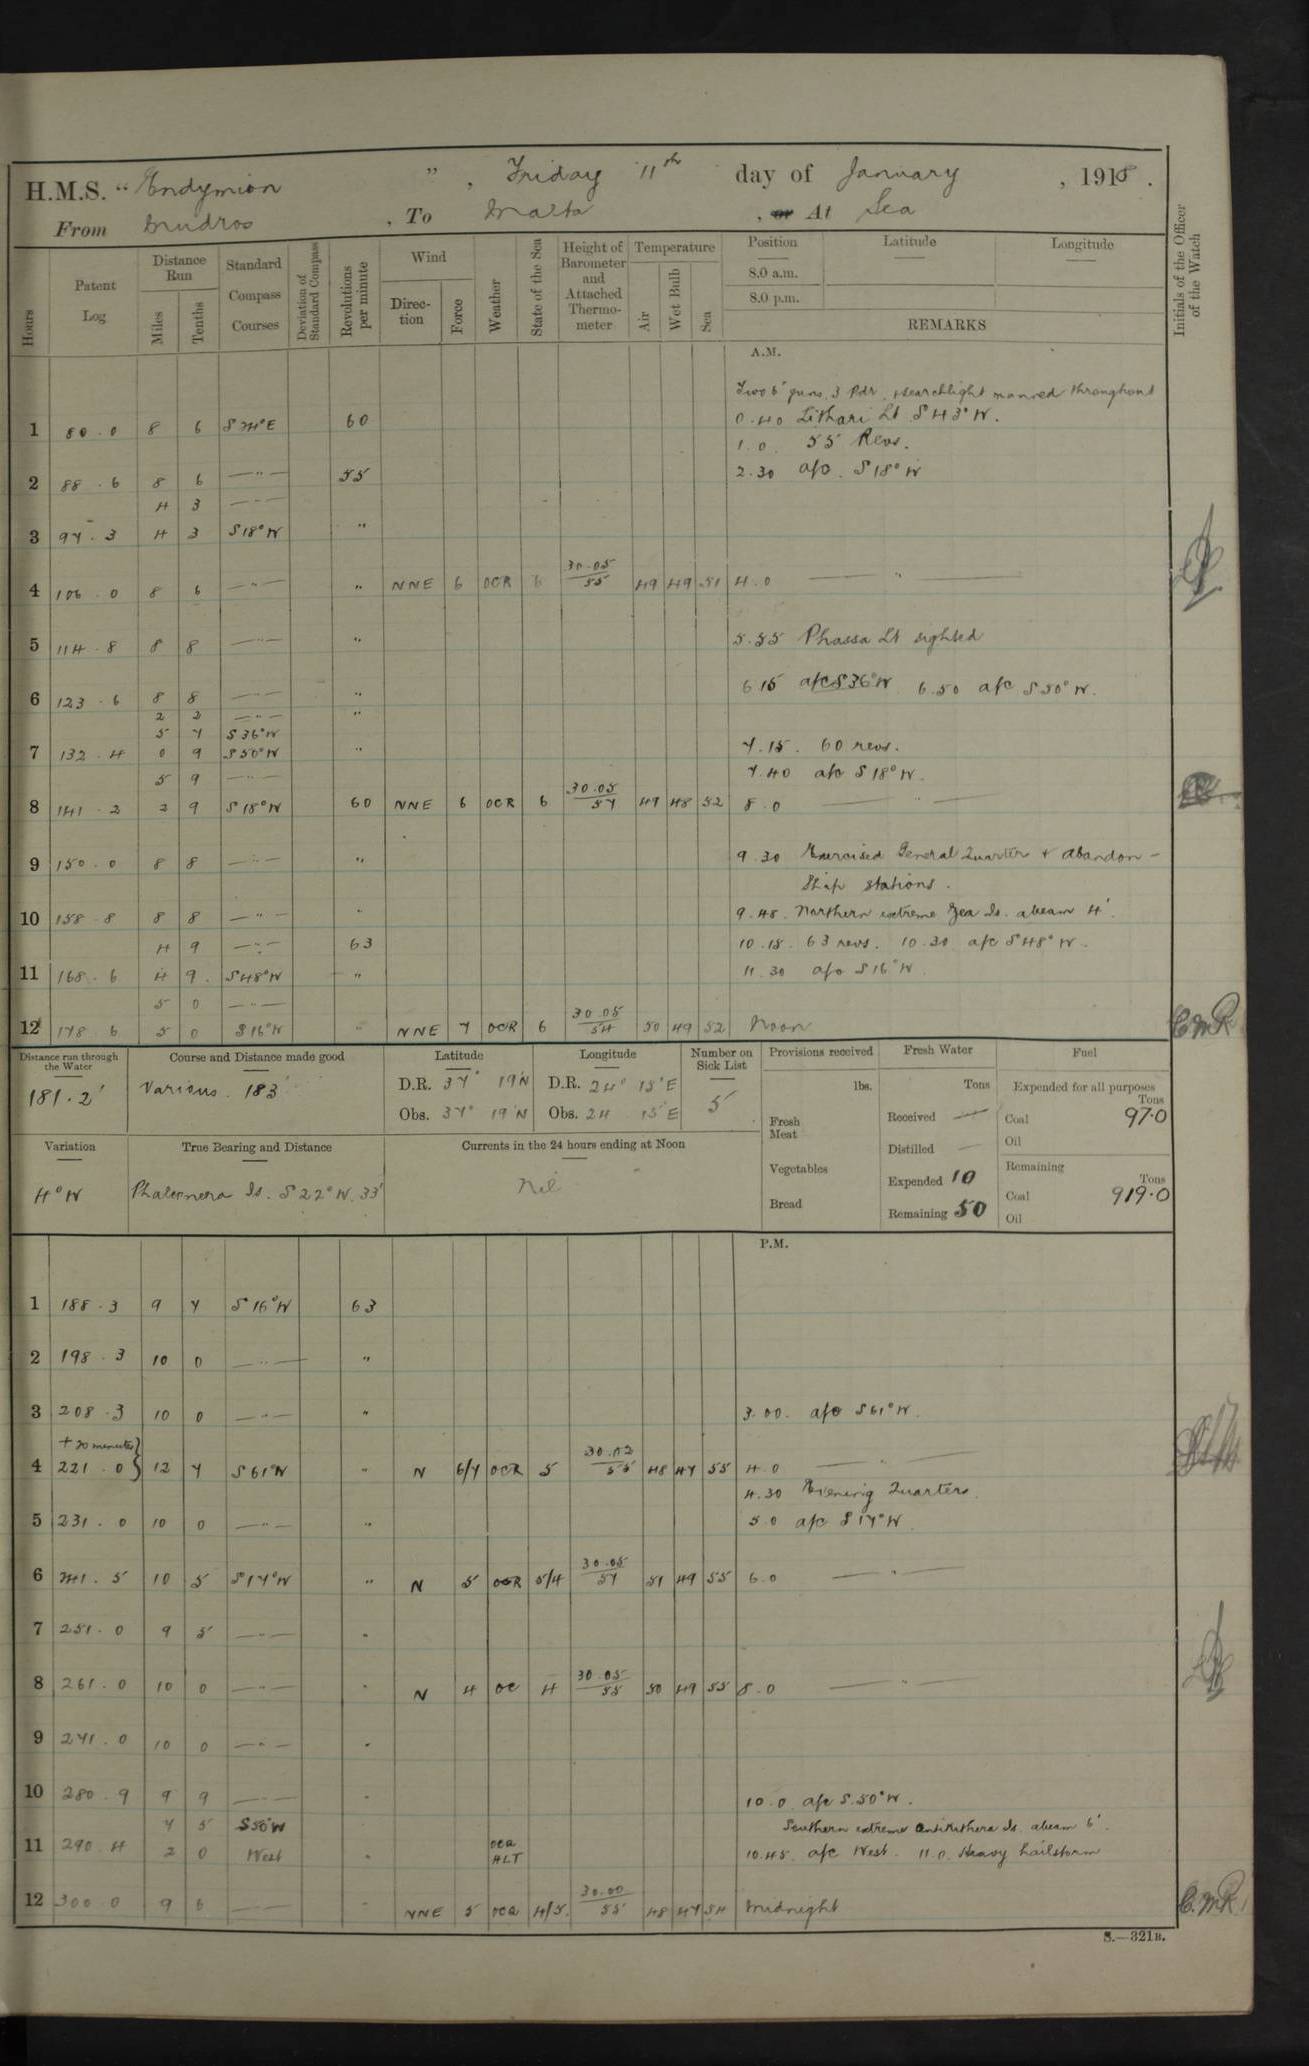 H.M.S. "Endymion", Friday 11th day of January, 1918.
From Mudros, To Malta, or At Sea
Hours
Patent Log
Distance Run
Miles
Tenths
Standard Compass Courses
Deviation of Standard Compass
Revolutions per minute
Wind
Direction
Force
Weather
State of the Sea
Height of Barometer and Attached Thermometer
Temperature
Air
Wet Bulb
Sea
Position Latitude Longitude
8.0 a.m.
8.0 p.m.
REMARKS
Initials of the Officer of the Watch
A.M.
Two 6" guns, 3 Pdr, + searchlight manned throughout
1 80.0 8 6 S74°E 60 0.40 Lithari Lt S43°W.
1.0 55 Revs.
2 88.6 8 6 —"— 55 2.30 a/c. S18°W
4 3 —"—
3 97.3 4 3 S18°W "
4 106.0 8 6 —"— " NNE 6 OCR 6 30.05/55 49 49 51 4.0 — " —
5 114.8 8 8 —"— " 5.55 Phassa Lt sighted
6 123.6 8 8 —"— " 6.15 a/c S36°W 6.50 a/c S50°W.
2 2 —"— "
5 7 S36°W
7 132.4 0 9 S50°W " 7.15. 60 revs.
5 9 —"— 7.40 a/c S18°W.
8 141.2 2 9 S18°W 60 NNE 6 OCR 6 30.05/57 49 48 52 8.0 — " —
9 150.0 8 8 —"— " 9.30 Exercised General Quarters & Abandon-
Ship stations.
10 158.8 8 8 —"— " 9.48. Northern extreme Zea Is. abeam 4'.
4 9 —"— 63 10.18. 63 revs. 10.30 a/c S48°W.
11 168.6 4 9. S48°W " 11.30 a/c S16°W
5 0 —"—
12 178.6 5 0 S16°W " NNE 7 OCR 6 30.05/54 50 49 52 Noon CMR
Distance run through the Water
181.2'
Course and Distance made good
Various. 183'
Latitude
D.R. 37° 19'N
Obs. 37° 19'N
Longitude
D.R. 24° 15'E
Obs. 24 15'E
Number on Sick List
5
Variation
4°W
True Bearing and Distance
Phalconera Is. S22°W. 33'
Currents in the 24 hours ending at Noon
Nil
Provisions received
lbs.
Fresh Meat
Vegetables
Bread
Fresh Water
Tons
Received —
Distilled —
Expended 10
Remaining 50
Fuel
Expended for all purposes
Tons
Coal 97.0
Oil
Remaining
Tons
Coal 919.0
Oil
P.M.
1 188.3 9 7 S16°W 63
2 198.3 10 0 —"— "
3 208.3 10 0 —"— " 3.00. a/c S61°W.
+20 minutes
4 221.0 12 7 S61°W " N 6/7 OCR 5 30.02/55 48 47 55 4.0 — " —
4.30 Evening Quarters.
5 231.0 10 0 —"— " 5.0 a/c S17°W
6 241.5 10 5 S17°W " N 5 OCR 5/4 30.05/57 51 49 55 6.0 — " —
7 251.0 9 5 —"— "
8 261.0 10 0 —"— " N 4 OC 4 30.05/55 50 49 55 8.0 — " —
9 271.0 10 0 —"— "
10 280.9 9 9 —"— " 10.0 a/c S.50°W.
7 5 S50°W Southern extreme Antikithera Is. abeam 6'.
11 290.4 2 0 West " OCQ ALT 10.45. a/c West. 11.0. Heavy hailstorm
12 300.0 9 6 —"— " NNE 5 OCQ 4/5. 30.00/55 48 47 54 Midnight C.M.R.
S.—321B.